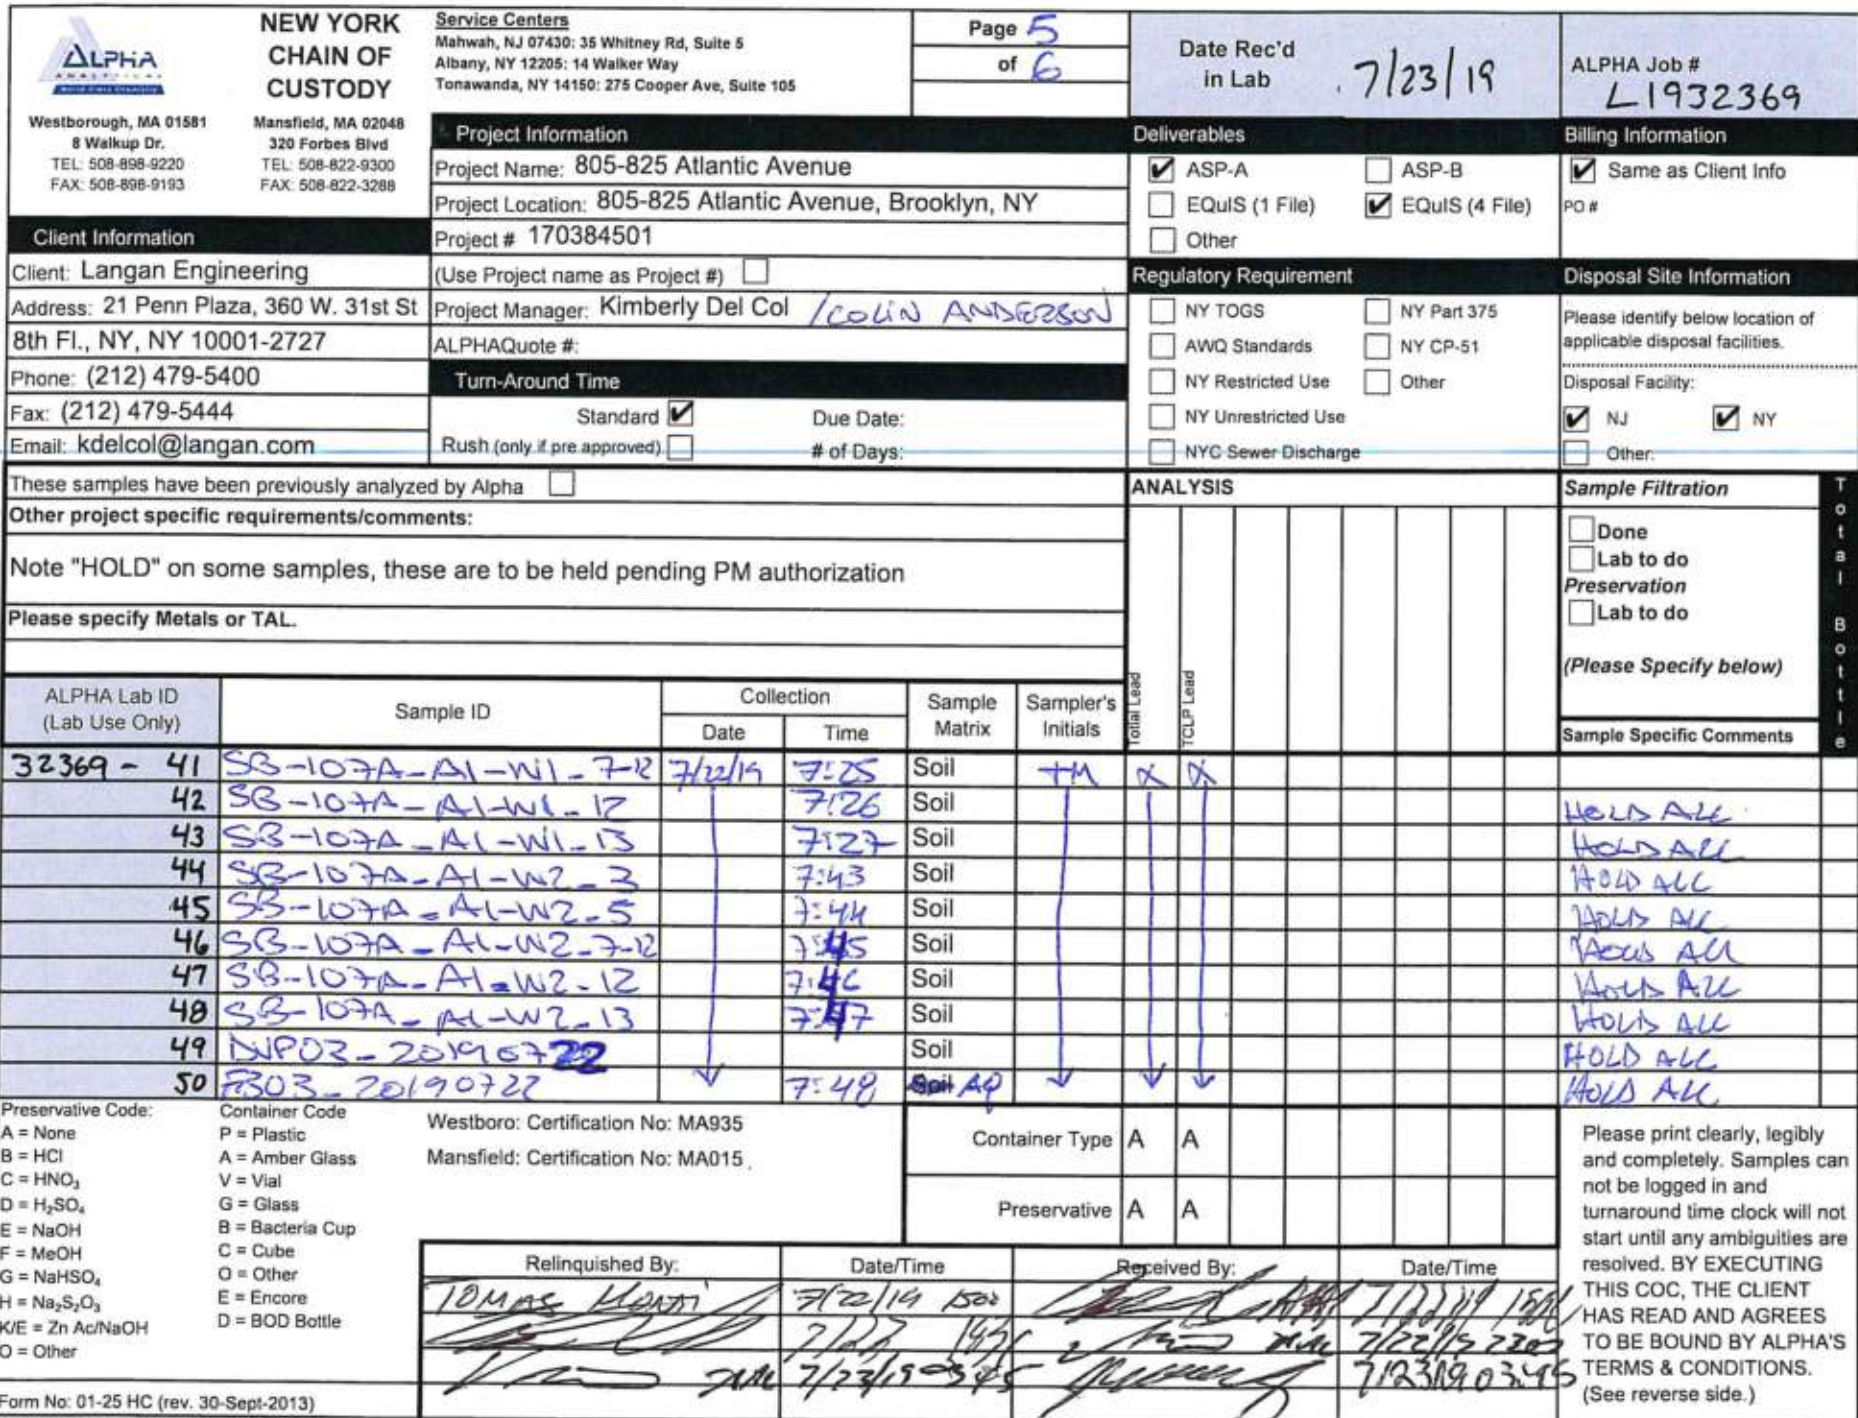 ALPHA
ANALYTICAL
World Class Chemistry
NEW YORK
CHAIN OF
CUSTODY
Westborough, MA 01581
8 Walkup Dr.
TEL: 508-898-9220
FAX: 508-898-9193
Mansfield, MA 02048
320 Forbes Blvd
TEL: 508-822-9300
FAX: 508-822-3288
Service Centers
Mahwah, NJ 07430: 35 Whitney Rd, Suite 5
Albany, NY 12205: 14 Walker Way
Tonawanda, NY 14150: 275 Cooper Ave, Suite 105
Page 5
of 6
Date Rec'd
in Lab 7/23/19
ALPHA Job #
L1932369
Project Information
Project Name: 805-825 Atlantic Avenue
Project Location: 805-825 Atlantic Avenue, Brooklyn, NY
Project # 170384501
(Use Project name as Project #)
Project Manager: Kimberly Del Col /COLIN ANDERSON
ALPHAQuote #:
Deliverables
ASP-A ASP-B
EQuIS (1 File) EQuIS (4 File)
Other
Billing Information
Same as Client Info
PO #
Client Information
Client: Langan Engineering
Address: 21 Penn Plaza, 360 W. 31st St
8th Fl., NY, NY 10001-2727
Phone: (212) 479-5400
Fax: (212) 479-5444
Email: kdelcol@langan.com
Turn-Around Time
Standard Due Date:
Rush (only if pre approved) # of Days:
Regulatory Requirement
NY TOGS NY Part 375
AWQ Standards NY CP-51
NY Restricted Use Other
NY Unrestricted Use
NYC Sewer Discharge
Disposal Site Information
Please identify below location of
applicable disposal facilities.
Disposal Facility:
NJ NY
Other:
These samples have been previously analyzed by Alpha
Other project specific requirements/comments:
Note "HOLD" on some samples, these are to be held pending PM authorization
Please specify Metals or TAL.
ANALYSIS
Total Lead
TCLP Lead
Sample Filtration
Done
Lab to do
Preservation
Lab to do
(Please Specify below)
Total Bottle
ALPHA Lab ID
(Lab Use Only)
Sample ID
Collection
Date Time
Sample
Matrix
Sampler's
Initials
Sample Specific Comments
32369 - 41 SB-107A_A1-W1_7-12 7/22/19 7:25 Soil TM X X
42 SB-107A_A1-W1_12 7:26 Soil HOLD ALL
43 SB-107A_A1-W1_13 7:27 Soil HOLD ALL
44 SB-107A_A1-W2_3 7:43 Soil HOLD ALL
45 SB-107A_A1-W2_5 7:44 Soil HOLD ALL
46 SB-107A_A1-W2_7-12 7:45 Soil HOLD ALL
47 SB-107A_A1-W2_12 7:46 Soil HOLD ALL
48 SB-107A_A1-W2_13 7:47 Soil HOLD ALL
49 DUP03_20190722 Soil HOLD ALL
50 FB03_20190722 7:48 Soil AQ HOLD ALL
Preservative Code:
A = None
B = HCl
C = HNO₃
D = H₂SO₄
E = NaOH
F = MeOH
G = NaHSO₄
H = Na₂S₂O₃
K/E = Zn Ac/NaOH
O = Other
Container Code
P = Plastic
A = Amber Glass
V = Vial
G = Glass
B = Bacteria Cup
C = Cube
O = Other
E = Encore
D = BOD Bottle
Westboro: Certification No: MA935
Mansfield: Certification No: MA015
Container Type A A
Preservative A A
Please print clearly, legibly
and completely. Samples can
not be logged in and
turnaround time clock will not
start until any ambiguities are
resolved. BY EXECUTING
THIS COC, THE CLIENT
HAS READ AND AGREES
TO BE BOUND BY ALPHA'S
TERMS & CONDITIONS.
(See reverse side.)
Relinquished By: Date/Time Received By: Date/Time
TOMAS 7/22/19 1500
7/22/19
7/23/19 0345 7/23/19 03:45
Form No: 01-25 HC (rev. 30-Sept-2013)